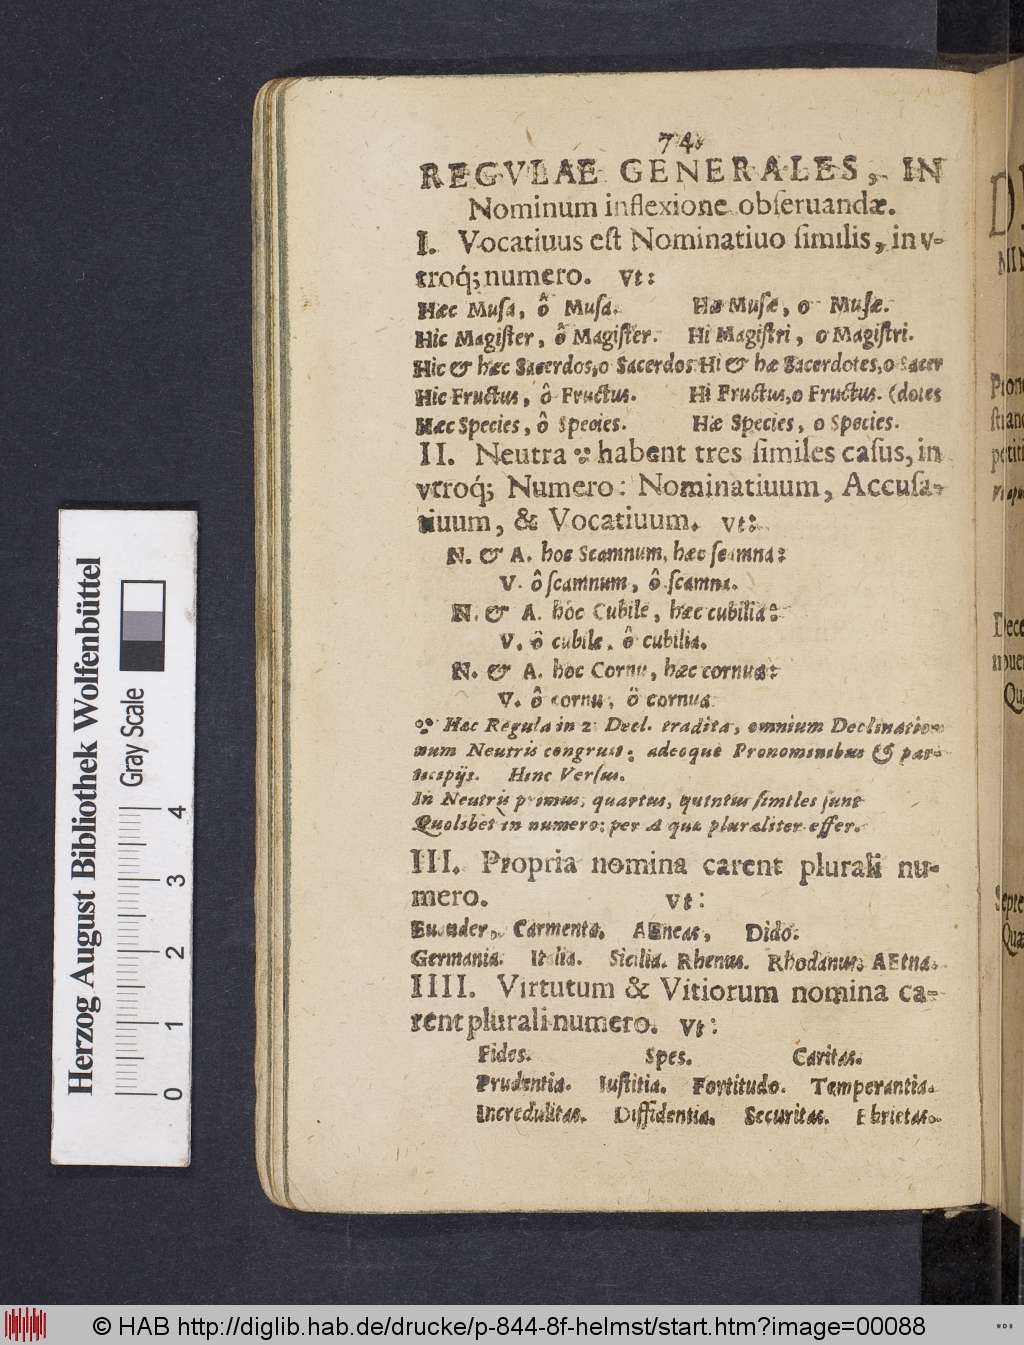 74.
REGVLAE GENERALES, IN
Nominum inflexione obſeruandæ.
I. Vocatiuus eſt Nominatiuo ſimilis, in v-
troq́; numero. vt:
Hæc Muſa, ô Muſa. Hæ Muſæ, o Muſæ.
Hic Magiſter, ô Magiſter. Hi Magiſtri, o Magiſtri.
Hic & hæc Sacerdos, o Sacerdos Hi & hæ Sacerdotes, o Sacer
Hic Fructus, ô Fructus. Hi Fructus, o Fructus. (dotes
Hæc Species, ô Species. Hæ Species, o Species.
II. Neutra habent tres ſimiles caſus, in
vtroq́; Numero: Nominatiuum, Accuſa-
tiuum, & Vocatiuum. vt:
N. & A. hoc Scamnum, hæc ſcamna:
V. ô ſcamnum, ô ſcamna.
N. & A. hoc Cubile, hæc cubilia:
V. ô cubile, ô cubilia.
N. & A. hoc Cornu, hæc cornua:
V. ô cornu, ô cornua.
Hæc Regula in 2 Decl. tradita, omnium Declinatio-
num Neutris congruit: adeoque Pronominibus & par-
ticipijs. Hinc Verſus.
In Neutris primus, quartus, quintus ſimiles ſunt
Quolibet in numero: per A quæ pluraliter effer.
III. Propria nomina carent plurali nu-
mero. vt:
Euander, Carmenta, AEneas, Dido.
Germania. Italia. Sicilia. Rhenus. Rhodanus. AEtna.
IIII. Virtutum & Vitiorum nomina ca-
rent plurali numero. vt:
Fides. Spes. Caritas.
Prudentia. Iuſtitia. Fortitudo. Temperantia.
Incredulitas. Diffidentia. Securitas. Ebrietas.
Herzog August Bibliothek Wolfenbüttel
Gray Scale
0 1 2 3 4
© HAB http://diglib.hab.de/drucke/p-844-8f-helmst/start.htm?image=00088